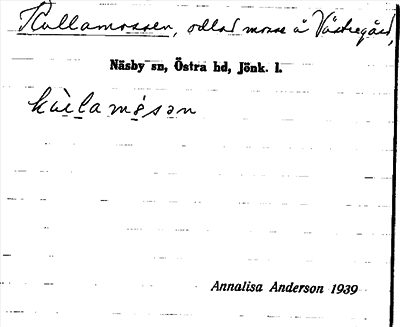 Kullamossen, odlad mosse å Västregård,
Näsby sn, Östra hd, Jönk. l.
kùlamósən
Annalisa Anderson 1939